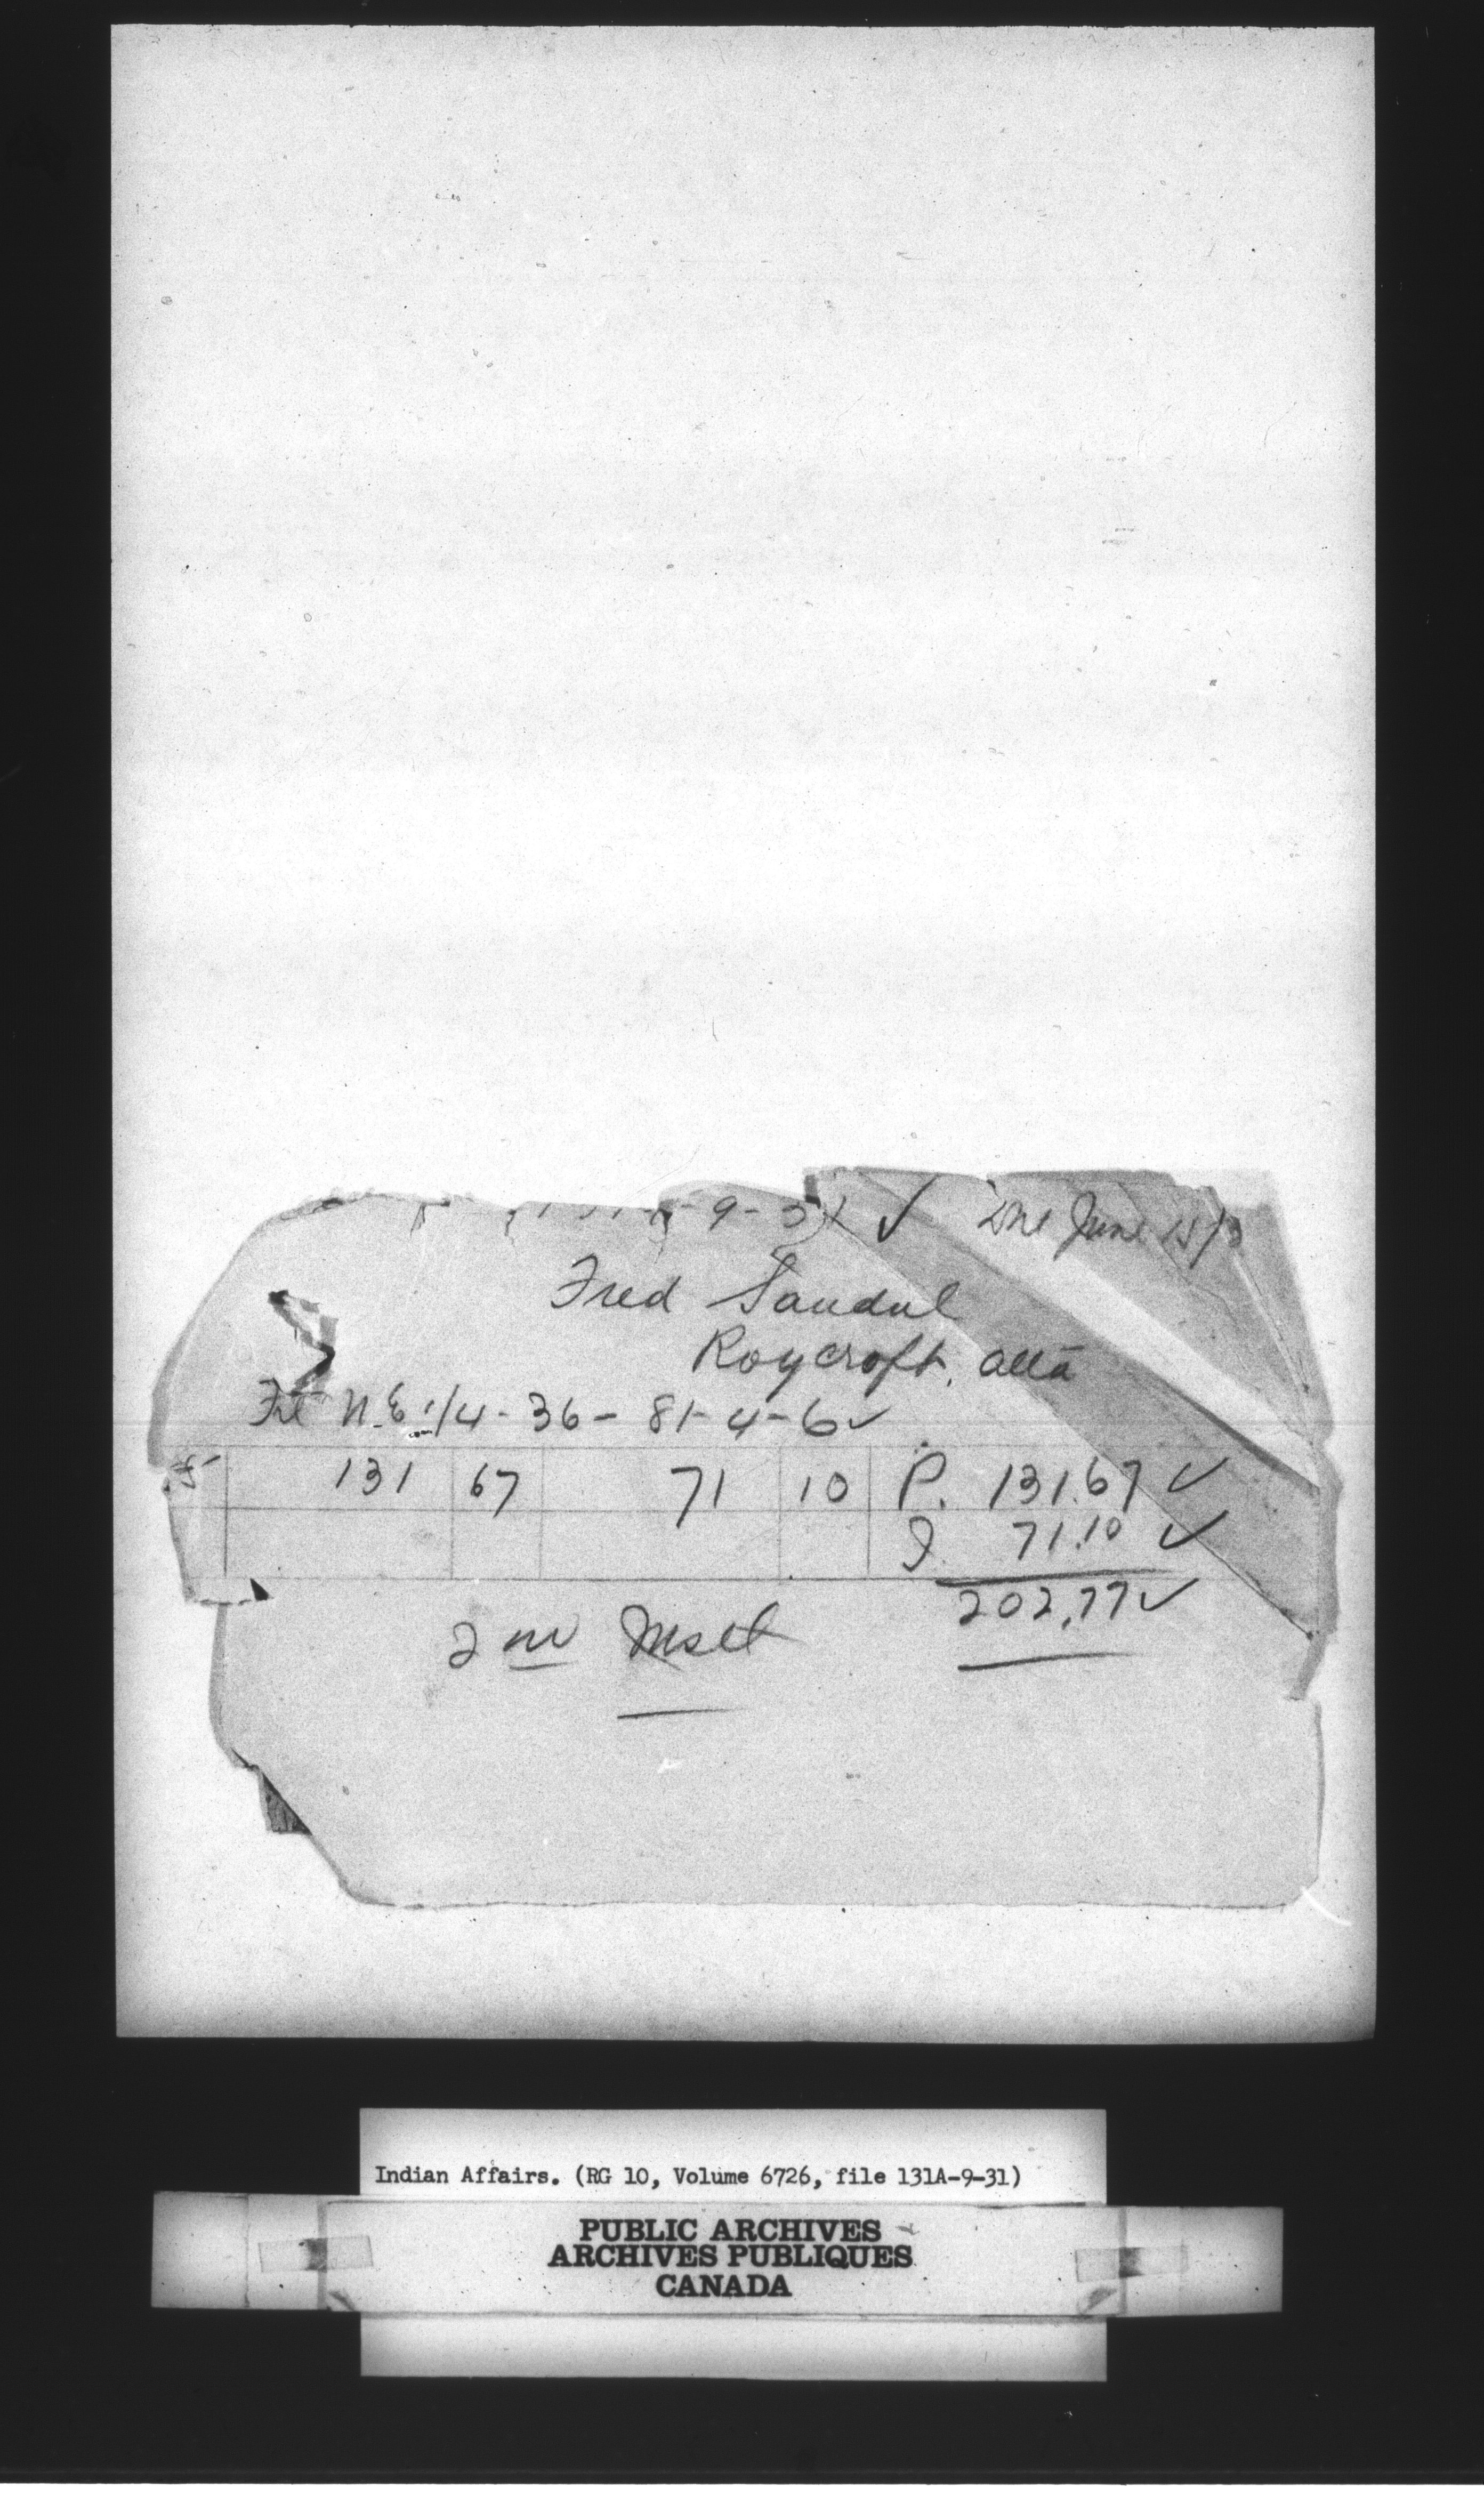 -9-31 ✓ Due June 15/3
Fred Sandul
Roycroft, Alta
Frl N.E. 1/4 - 36 - 81 - 4 - 6 ✓
5 131 67 71 10 P. 131.67 ✓
I 71.10 ✓
202.77 ✓
2nd Inst
Indian Affairs. (RG 10, Volume 6726, file 131A-9-31)
PUBLIC ARCHIVES
ARCHIVES PUBLIQUES
CANADA